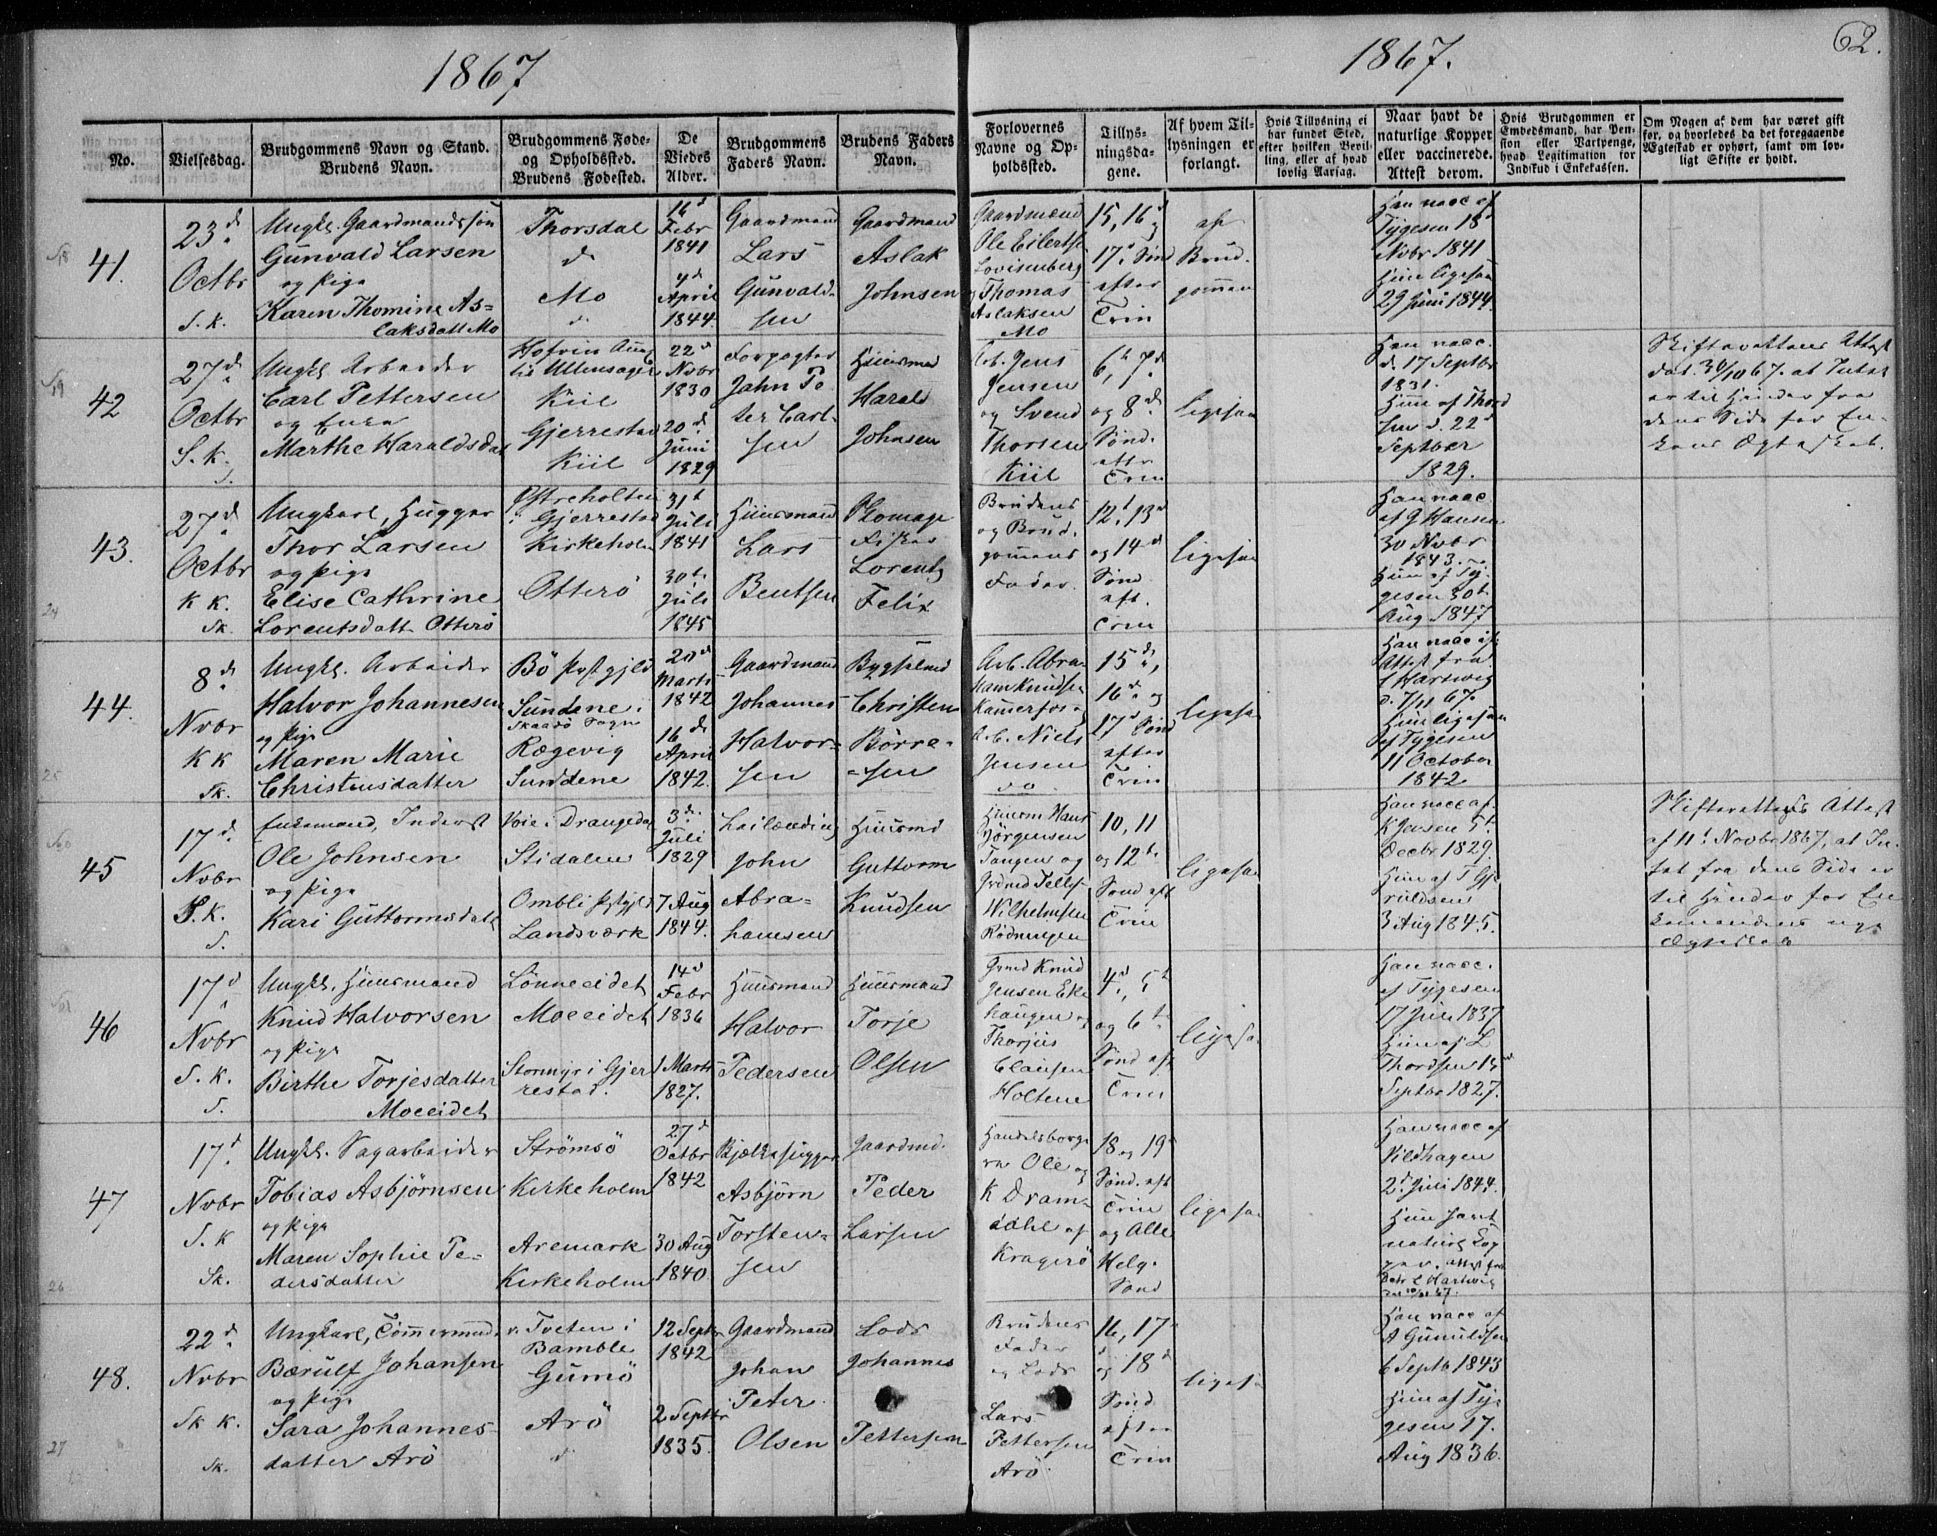 1867
1867.
62.
No.
Vielsesdag.
Brudgommens Navn og Stand.
Brudens Navn.
Brudgommens Føde-
og Opholdssted.
Brudens Fødested.
De
Viedes
Alder.
Brudgommens
Faders Navn.
Brudens Faders
Navn.
Forlovernes
Navne og Op-
holdssted.
Tillys-
ningsda-
gene.
Af hvem Til-
lysningen er
forlangt.
Hvis Tillysning ei
har fundet Sted,
efter hvilken Bevil-
ling, eller af hvad
lovlig Aarsag.
Naar havt de
naturlige Kopper
eller vaccinerede.
Attest derom.
Hvis Brudgommen er
Embedsmand, har Pen-
sion eller Vartpenge,
hvad Legitimation for
Indskud i Enkekassen.
Om Nogen af dem har været gift
før, og hvorledes da det foregaaende
Ægteskab er ophørt, samt om lov-
ligt Skifte er holdt.
41.
23d
Octbr
S. k.
Ungk. Gaardmandssøn
Gunvald Larsen
og Pige
Karen Thomine As-
laksdatt Mo
Thorsdal
do
Mo
do
16d
Febr
1841
4d
April
1844.
Gaardmand
Lars
Gunvald-
sen
Gaardmand
Aslak
Johnsen
Gaardmænd
Ole Eilertse
Lovisenberg
og Thomas
Aslaksen
Mo
15, 16d
17d Sønd
efter
Trin
af
Brud-
gommen
Han vacc af
Tygesen 18d
Novbr 1841
Hun ligesaa
29 Juni 1844
42
27d
Octbr
S. K.
S.
Ungk. Arbeider
Carl Pettersen
og Enke
Marthe Haraldsda
Kiil
Gjerrestad
Kiil
22d
Novbr
1830
20d
Juni
1829
Forpagter
John Pe
ter Carl-
sen
Huusmd
Harald
Johnsen
Arb. Jens
Jensen
og Svend
Thorsen
Kiil
6t, 7d
og 8de
Sønd.
eftr
Trin
ligesaa
Han vacc.
d. 17 Septbr
1831.
Hun af Thord
sen d. 22d
Septber
1829.
Skifterettens Attest
dat 30/10 67. at Intet
er til Hinder fra
dens Side for En-
kens Ægteskab.
43.
27d
Octbr
K K.
Sk.
Ungkarl, Hugger
Thor Larsen
og Pige
Elise Cathrine
Lorentsdatt. Otterö
Østreholten
i Gjerrestad
Kirkeholm
Otterö
31t
Juli
1841
30te
Juli
1845
Huusmand
Lars
Bentsen
Fisker
Lorentz
Felix
Brudens
og Brud-
gommens
Fader.
12t, 13d
og 14d
Sønd
eft.
Trin
ligesaa
Han vacc
af G Hansen
30 Novbr
1843.
Hun af Ty-
gesen 30t
Aug 1847
44.
8d
Nvbr
K K
Sk.
Ungk. Arbeider
Halvor Johannesen
og Pige
Maren Marie
Christensdatter
Bö Pstgjeld
Sundene i
Skaadö Sogn
Rægevig
Sundene
20d
Marts
1842
16d
April
1842.
Gaardmand
Johannes
Halvor-
sen
Bygselmd
Christen
Börre-
sen
Arb. Abra-
ham Knudse
Kamerfos og
Arb. Niels
Jensen
do
15de,
16de og
17d Sønd
efter
Trin
ligesaa
Han vacc efr
Attest fra
Hartwig
d. 7/11 67.
Hun ligesaa
af Tygesen
11 October
1842
45
17d
Nvbr
S. K.
S.
Enkemand, Inderst
Ole Johnsen
og Pige
Kari Guttormsdatt
Voie i Drangeda
Stidalen
Ombli Pstgjeld
Landsværk
3die
Juli
1829
7 Aug
1844.
Leilænding
John
Abra-
hamsen
Huusmd
Guttorm
Knudsen
Huusm Hans
Jörgensen
Tangen og
Grdmd Tellef
Wilhelmsen
Rödningen
10, 11
og 12te
Sønd eft
Trin
ligesaa
Han vacc af
K Jensen 5t
Decbr 1829.
Hun af T Gje
ruldsen
3 Aug 1845.
Skifterettens Attest
af 11t Novbr 1867, at In-
tet fra dens Side er
til Hinder for En
kemandens nye
Ægteskab
46
17d
Nvbr
S. K.
S.
Ungk. Huusmand
Knud Halvorsen
og Pige
Birthe Torjesdatter
Moeeidet
Lönneeidet
Moeeidet
Stormyr i Gjer
restad.
14d
Febr
1836
1 Marts
1827.
Huusmand
Halvor
Pedersen
Huusmand
Torje
Olsen
Grmd Knud
Jensen Eke
haugen og
Thorjus
Clausen
Holtene
4d, 5t
og 6te
Sønd eft
Trin
ligesaa
Han vacc.
af Tygesen
17 Juli 1837
Hun af L
Thordsen 15
Septbr 1827.
47
17d
Nvbr
S. K
Sk.
Ungk. Sagarbeider
Tobias Asbjörnsen
og Pige
Maren Sophie Pe-
dersdatter
Strömsö
Kirkeholm
Aremark
Kirkeholm
27d
Octbr
1842
30 Aug
1840
Bjelkehugger
Asbjörn
Torsten-
sen
Gaardmd.
Peder
Larsen
Handelsborge
re Ole og
K Dram-
dahl af
Kragerö
18 og 19d
Sønd. eft
Trin
og Alle
Helg.
Sønd
ligesaa
Han vacc af
Vildhagen
2d Juli 1844.
Hun havt
naturl Kop
per. Attest fra
Hartwig
48.
22d
Nvbr
Sk k.
Sk.
Ungkarl, Tömmermd.
Bærulf Johansen
og Pige
Sara Johannes-
datter Arö
v. Tveten i
Bamble
Gumö
Arö
do
12 Septbr
1842
2 Septbr
1835.
Gaardmand
Johan
Peter
Olsen
Lods
Johannes
Pettersen
Brudens
Fader
og Lods
Lars
Pettersen
Arö.
16, 17d
og 18d
Sønd
efter
Trin
ligesaa
Han vacc af
A Gunuldsen
6 Septb 1843
Hun af Ty-
gesen 17.
Aug 1836.